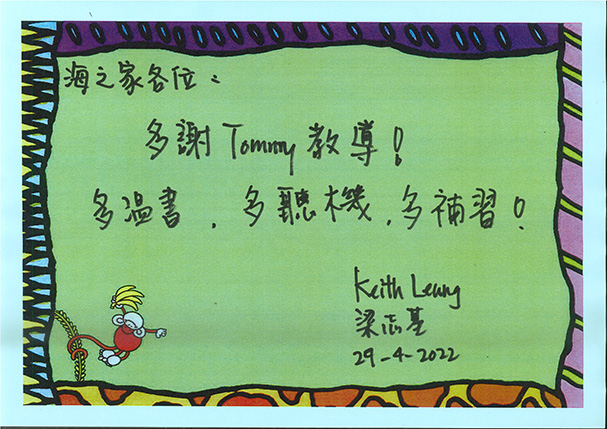 海之家各位：
多謝 Tommy 教導！
多温書，多聽機，多補習！
Keith Leung
梁志基
29-4-2022